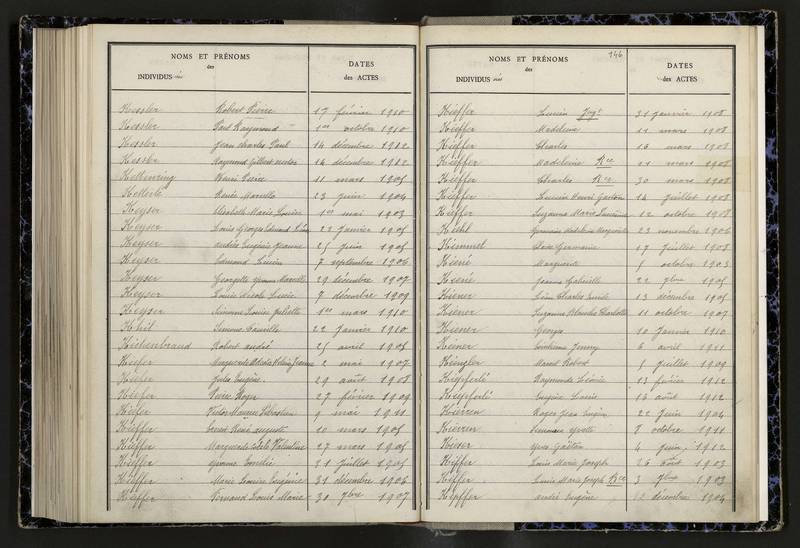 NOMS ET PRÉNOMS
des
INDIVIDUS
DATES
des ACTES
Kessler Robert Pierre 17 février 1910
Kessler Paul Raymond 1er octobre 1910
Kessler Jean Charles Paul 14 décembre 1912
Kessler Raymond Gilbert 14 décembre 1912
Henri Pierre 11 mars 1905
Renée Marcelle 23 juin 1904
Keyser Elisabeth Marie Louise 1er mai 1903
Keyser Louis Georges Edmond 22 janvier 1905
Keyser Andrée Eugénie Jeanne 25 juin 1905
Keyser Edmond Lucien 7 septembre 1906
Keyser Georgette Yvonne Marcelle 29 décembre 1907
Keyser Louise 9 décembre 1909
Keyser Simonne Louise Juliette 1er mars 1910
Camille 22 janvier 1910
Kichenbrand Robert André 25 avril 1905
Kiefer Marguerite 2 mai 1907
Kiefer Jules Eugène 29 août 1908
Kiefer Pierre Roger 27 février 1909
Kiefer Victor Maurice Sébastien 9 mai 1911
Kieffer René Auguste 10 mars 1905
Kieffer Marguerite Valentine 27 mars 1905
Kieffer Yvonne 21 juillet 1905
Kieffer Marie Louise Eugénie 31 décembre 1906
Kieffer Fernand Louis Marie 30 7bre 1907
146
NOMS ET PRÉNOMS
des
INDIVIDUS
DATES
des ACTES
Kieffer Lucien Jugt 31 janvier 1908
Kieffer Madeleine 11 mars 1908
Kieffer Charles 16 mars 1908
Kieffer Madeleine Rce 21 mars 1908
Kieffer Charles Rce 30 mars 1908
Kieffer Lucien Henri Gaston 14 juillet 1908
Kieffer Suzanne Marie 12 octobre 1908
Kiehl Germaine Madeleine Marguerite 23 novembre 1906
Kiemmel Germaine 17 juillet 1908
Kiené Marguerite octobre 1903
Kiené Jeanne Gabrielle 22 7bre 1905
Kiener Léon Charles 13 décembre 1905
Kiener Suzanne Blanche Charlotte 11 octobre 1907
Kiener Georges 10 janvier 1910
Kiener Jenny 6 avril 1911
Kiengler Marcel Robert 1 juillet 1909
Kiepferlé Raymonde Léonie 13 février 1912
Kiepferlé Eugène Louis 13 août 1912
Roger Jean Eugène 22 juin 1904
Yvette 8 octobre 1911
Kieser Yves Gaëtan 4 juin 1912
Kiffer Louis Marie Joseph 26 août 1903
Kiffer Louis Marie Joseph Rce 3 7bre 1903
Kieffer André Eugène 12 décembre 1904